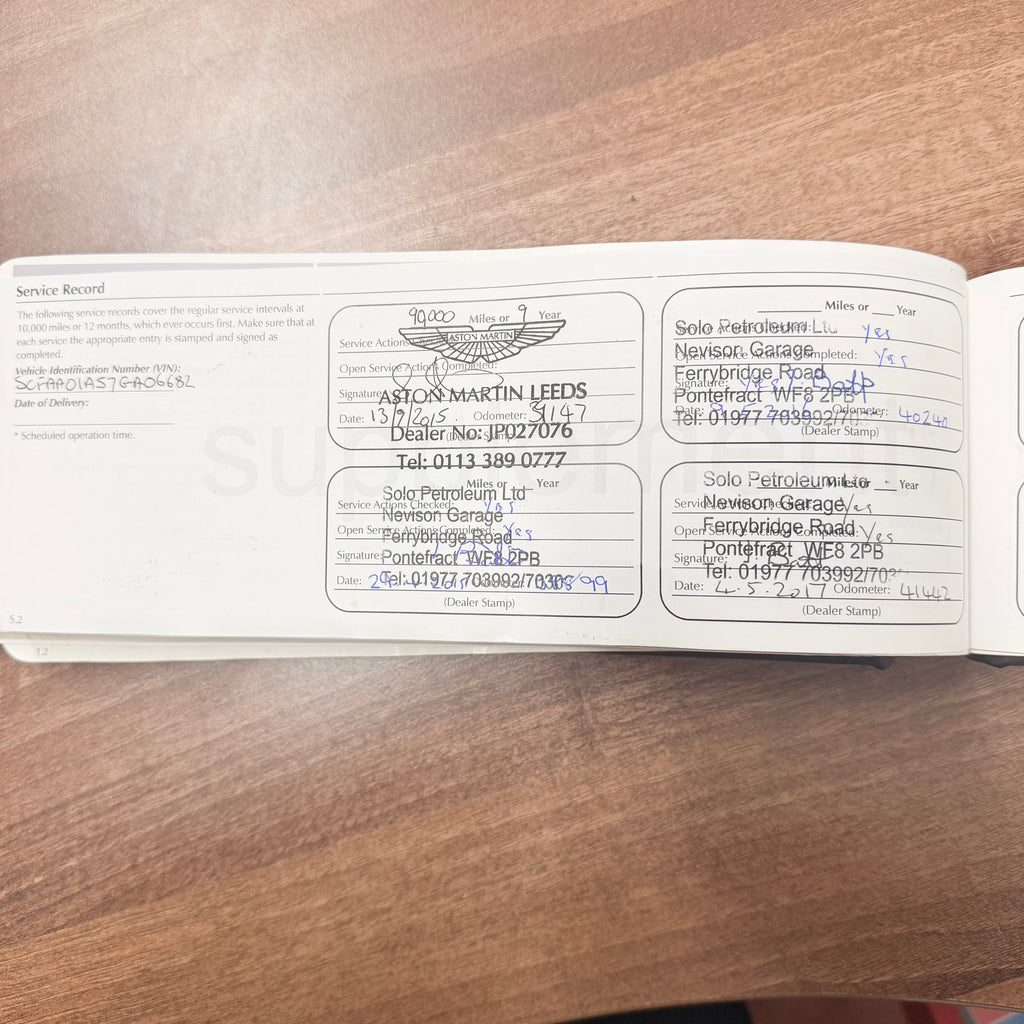 Service Record
The following service records cover the regular service intervals at
10,000 miles or 12 months, which ever occurs first. Make sure that at
each service the appropriate entry is stamped and signed as
completed.
Vehicle Identification Number (VIN):
SCFAA01A57GA06682
Date of Delivery:
* Scheduled operation time.
S.2
1.2
90,000 Miles or 9 Year
ASTON MARTIN
Service Actions
Open Service Actions Completed:
Signature:
ASTON MARTIN LEEDS
Date: 13/9/2015. Odometer: 31147
Dealer No: JP027076
Tel: 0113 389 0777
Miles or Year
Solo Petroleum Ltd
Service Actions Checked: Yes
Nevison Garage
Open Service Actions Completed: Yes
Ferrybridge Road
Signature:
Pontefract WF8 2PB
Date:
Tel: 01977 703992/
(Dealer Stamp)
Miles or Year
Solo Petroleum
Yes
Nevison Garage
Open Service Actions Completed: Yes
Ferrybridge Road
Signature:
Pontefract WF8 2PB
Date: Odometer: 40240
Tel: 01977 703992/
(Dealer Stamp)
Solo Petroleum Miles or Year
Service Yes
Nevison Garage
Open Service Actions Completed: Yes
Ferrybridge Road
Signature:
Pontefract WF8 2PB
Tel: 01977 703992/
Date: 4.5.2017 Odometer: 41442
(Dealer Stamp)